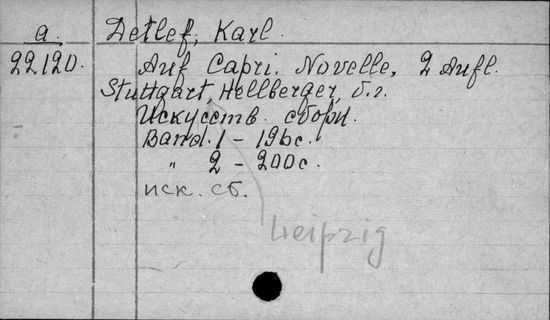 a. Detlef, Karl.
22120. Auf Capri. Novelle. 2 Aufl.
Stuttgart, Hellberger, б.г.
Искусств. сборн.
Band. 1 - 196 с.
" 2 - 200 с.
иск. сб.
Leipzig